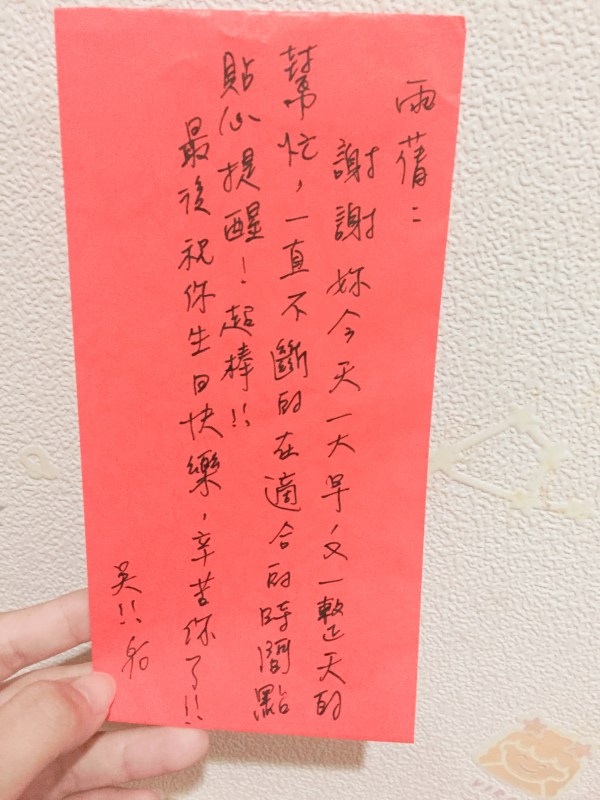 雨蒨：
謝謝妳今天一大早，又一整天的
幫忙，一直不斷的在適合的時間點
貼心提醒！超棒!!
最後祝你生日快樂，辛苦你了!!
吳!!